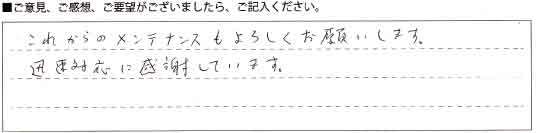 ■ご意見、ご感想、ご要望がございましたら、ご記入ください。
これからのメンテナンスもよろしくお願いします。
迅速対応に感謝しています。